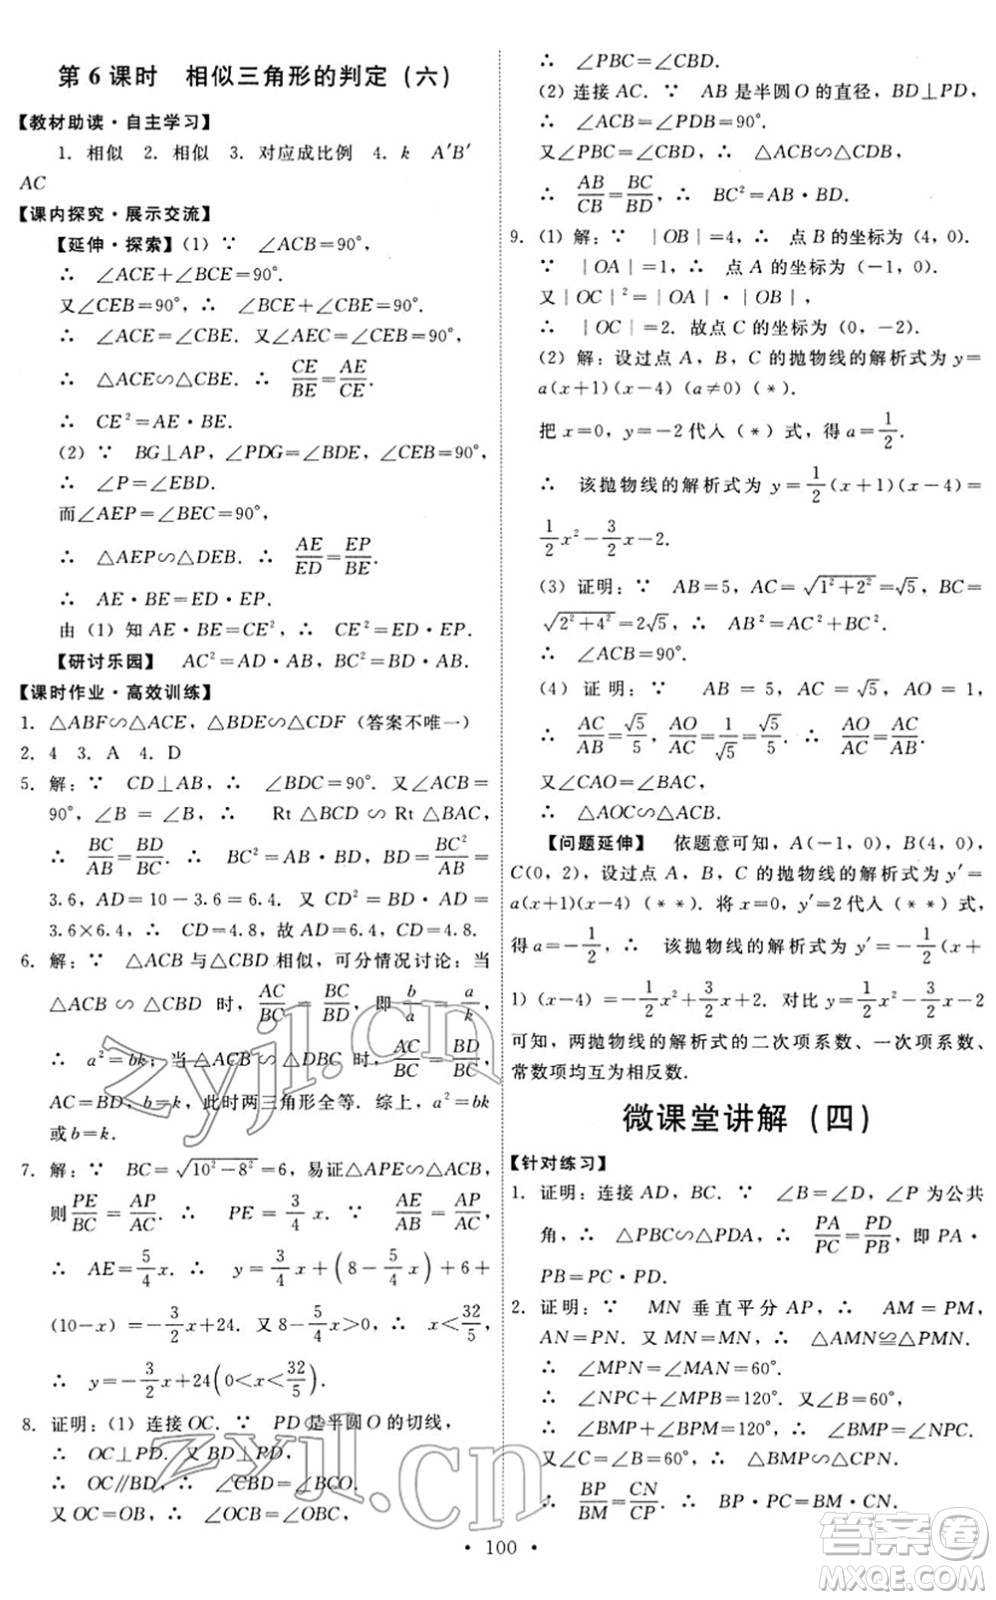 第 6 课时 相似三角形的判定（六）
【教材助读·自主学习】
1. 相似 2. 相似 3. 对应成比例 4. k A′B′
AC
【课内探究·展示交流】
【延伸·探索】(1) ∵ ∠ACB=90°,
∴ ∠ACE+∠BCE=90°.
又∠CEB=90°, ∴ ∠BCE+∠CBE=90°.
∴ ∠ACE=∠CBE. 又∠AEC=∠CEB=90°,
∴ △ACE∽△CBE. ∴ CE/BE=AE/CE.
∴ CE²=AE·BE.
(2) ∵ BG⊥AP, ∠PDG=∠BDE, ∠CEB=90°,
∴ ∠P=∠EBD.
而∠AEP=∠BEC=90°,
∴ △AEP∽△DEB. ∴ AE/ED=EP/BE.
∴ AE·BE=ED·EP.
由 (1) 知 AE·BE=CE², ∴ CE²=ED·EP.
【研讨乐园】 AC²=AD·AB, BC²=BD·AB.
【课时作业·高效训练】
1. △ABF∽△ACE, △BDE∽△CDF (答案不唯一)
2. 4 3. A 4. D
5. 解: ∵ CD⊥AB, ∴ ∠BDC=90°. 又∠ACB=
90°, ∠B = ∠B, ∴ Rt △BCD ∽ Rt △BAC,
∴ BC/AB=BD/BC. ∴ BC²=BD·AB. ∴ BD=BC²/AB=
3.6, AD=10-3.6=6.4. 又 CD²=BD·AD=
3.6×6.4, ∴ CD=4.8, 故 AD=6.4, CD=4.8.
6. 解: ∵ △ACB 与△CBD 相似, 可分情况讨论: 当
△ACB ∽ △CBD 时, AC/BC = BC/BD, 即 b/a = a/k,
∴ a²=bk; 当△ACB ∽ △DBC 时, AC/BC = BD/BC,
AC=BD, b=k, 此时两三角形全等. 综上, a²=bk
或 b=k.
7. 解: ∵ BC=√(10²-8²)=6, 易证△APE∽△ACB,
则 PE/BC=AP/AC. ∴ PE=3/4 x. ∵ AE/AB=AP/AC,
∴ AE=5/4 x. ∴ y=3/4 x+(8-5/4 x)+6+
(10-x)=-3/2 x+24. 又 8-5/4 x>0, ∴ x<32/5,
∴ y=-3/2 x+24(0<x<32/5).
8. 证明: (1) 连接 OC. ∵ PD 是半圆 O 的切线,
∴ OC⊥PD. 又 BD⊥PD,
∴ OC∥BD, ∴ ∠CBD=∠BCO.
又 OC=OB, ∴ ∠OCB=∠OBC,
∴ ∠PBC=∠CBD.
(2) 连接 AC. ∵ AB 是半圆 O 的直径, BD⊥PD,
∴ ∠ACB=∠PDB=90°.
又∠PBC=∠CBD, ∴ △ACB∽△CDB,
∴ AB/CB=BC/BD, ∴ BC²=AB·BD.
9. (1) 解: ∵ |OB|=4, ∴ 点 B 的坐标为 (4, 0).
∵ |OA|=1, ∴ 点 A 的坐标为 (-1, 0).
又|OC|²=|OA|·|OB|,
∴ |OC|=2. 故点 C 的坐标为 (0, -2).
(2) 解: 设过点 A, B, C 的抛物线的解析式为 y=
a(x+1)(x-4) (a≠0) (*).
把 x=0, y=-2 代入 (*) 式, 得 a=1/2.
∴ 该抛物线的解析式为 y=1/2(x+1)(x-4)=
1/2 x²-3/2 x-2.
(3) 证明: ∵ AB=5, AC=√(1²+2²)=√5, BC=
√(2²+4²)=2√5, ∴ AB²=AC²+BC².
∴ ∠ACB=90°.
(4) 证明: ∵ AB = 5, AC = √5, AO = 1,
∴ AC/AB=√5/5, AO/AC=1/√5=√5/5. ∴ AO/AC=AC/AB.
又∠CAO=∠BAC,
∴ △AOC∽△ACB.
【问题延伸】 依题意可知, A(-1, 0), B(4, 0),
C(0, 2), 设过点 A, B, C 的抛物线的解析式为 y′=
a(x+1)(x-4) (**). 将 x=0, y=2 代入 (**) 式,
得 a=-1/2. ∴ 该抛物线的解析式为 y′=-1/2(x+
1) (x-4)=-1/2 x²+3/2 x+2. 对比 y=1/2 x²-3/2 x-2
可知, 两抛物线的解析式的二次项系数、一次项系数、
常数项均互为相反数.
微课堂讲解（四）
【针对练习】
1. 证明: 连接 AD, BC. ∵ ∠B=∠D, ∠P 为公共
角, ∴ △PBC∽△PDA, ∴ PA/PC=PD/PB, 即 PA·
PB=PC·PD.
2. 证明: ∵ MN 垂直平分 AP, ∴ AM=PM,
AN=PN. 又 MN=MN, ∴ △AMN≌△PMN.
∴ ∠MPN=∠MAN=60°.
∴ ∠NPC+∠MPB=120°. 又∠B=60°,
∴ ∠BMP+∠BPM=120°, ∴ ∠BMP=∠NPC.
又∠C=∠B=60°, ∴ △BMP∽△CPN.
∴ BP/BM=CN/CP. ∴ BP·PC=BM·CN.
· 100 ·
zyjl.cn
zyjl.cn
答案卷
MXQE.COM